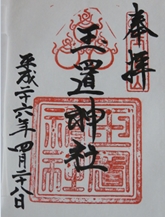 奉拝
玉置神社
平成二十六年四月二十八日
玉置
神社